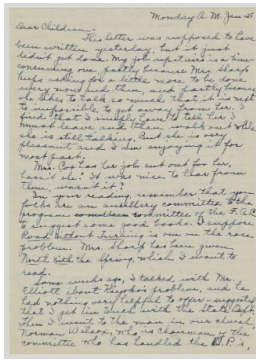 Monday A.M. Jan 25
Dear Children:-
This letter was supposed to have
been written yesterday, but it just
didn't get done. My job up stairs is a time-
consuming one, partly because Mrs. Sharp
keeps asking for a little more to be done
every now and then, and partly because
she likes to talk so much that it is next
to impossible to get away from her. I
find that I simply have to tell her I
must leave and then walk out while
she is still talking. But she is very
pleasant and I am enjoying it for
most part.
Mrs. Cox has her job cut out for her,
hasn't she? It was nice to hear from
them, wasn't it?
In your reading, remember that you
folks are an auxiliary committee to the
program committee of the F.A.C.
to suggest some good books. I suppose
Road Without Turning is one on the race
problem. Mrs. Sharp has been given
North With the Spring, which I want to
read.
Some weeks ago, I talked with Mr.
Elliott about problem, and he
had nothing very helpful to offer - suggested
that I get in touch with the State Dept.
Then I went to the man in our church,
Norman Wilson, who is chairman of the
committee who has handled the D.P.'s,